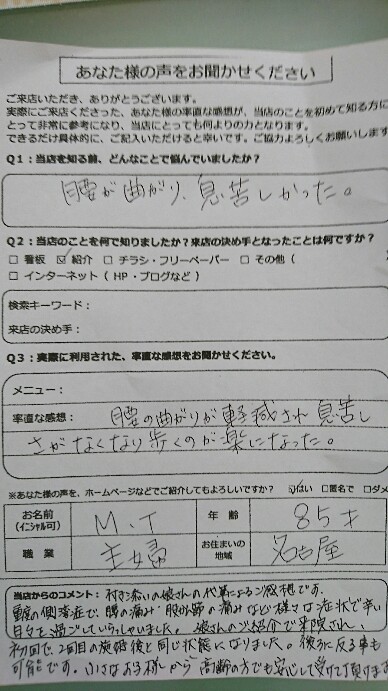 あなた様の声をお聞かせください
ご来店いただき、ありがとうございます。
実際にご来店くださった、あなた様の率直な感想が、当店のことを初めて知る方に
とって非常に参考になり、当店にとっても何よりの力となります。
できるだけ具体的に、ご記入いただけると幸いです。ご協力よろしくお願いします
Q1：当店を知る前、どんなことで悩んでいましたか？
腰が曲がり、息苦しかった。
Q2：当店のことを何で知りましたか？来店の決め手となったことは何ですか？
□ 看板 ☑ 紹介 □ チラシ・フリーペーパー □ その他（
□ インターネット（ HP・ブログなど ）
検索キーワード：
来店の決め手：
Q3：実際に利用された、率直な感想をお聞かせください。
メニュー：
率直な感想： 腰の曲がりが軽減され 息苦し
さがなくなり歩くのが楽になった。
※あなた様の声を、ホームページなどでご紹介してもよろしいですか？ ☑はい □匿名で □ダメ
お名前 （イニシャル可） M.T 年 齢 85才
職 業 主婦 お住まいの地域 名古屋
当店からのコメント： 付き添いの娘さんの代筆によるご感想です。
重度の側湾症で、腰の痛み 股関節の痛みなど様々な症状で辛い
日々を過ごしていらっしゃいました。娘さんのご紹介で来院され、
初回で、2回目の施術後と同じ状態になりました。後ろに反る事も
可能です。小さなお子様から ご高齢の方でも安心して受けて頂けます